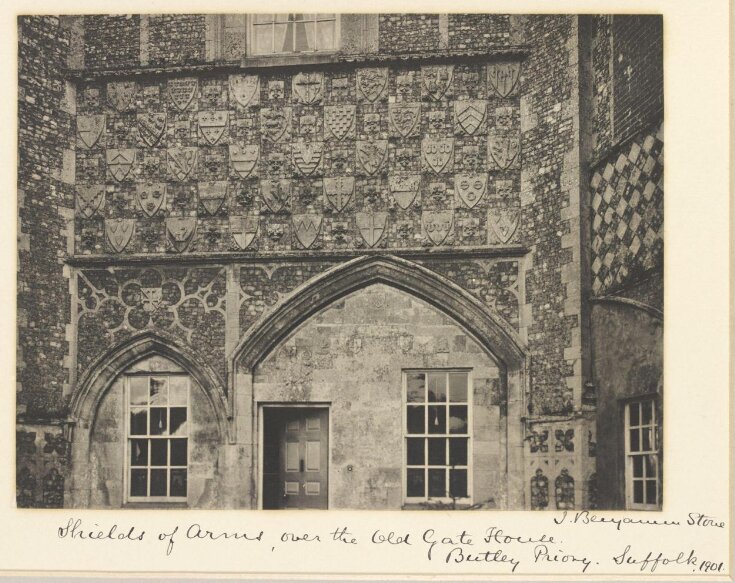 J. Benjamin Stone
Shields of Arms, over the Old Gate House.
Butley Priory. Suffolk, 1901.